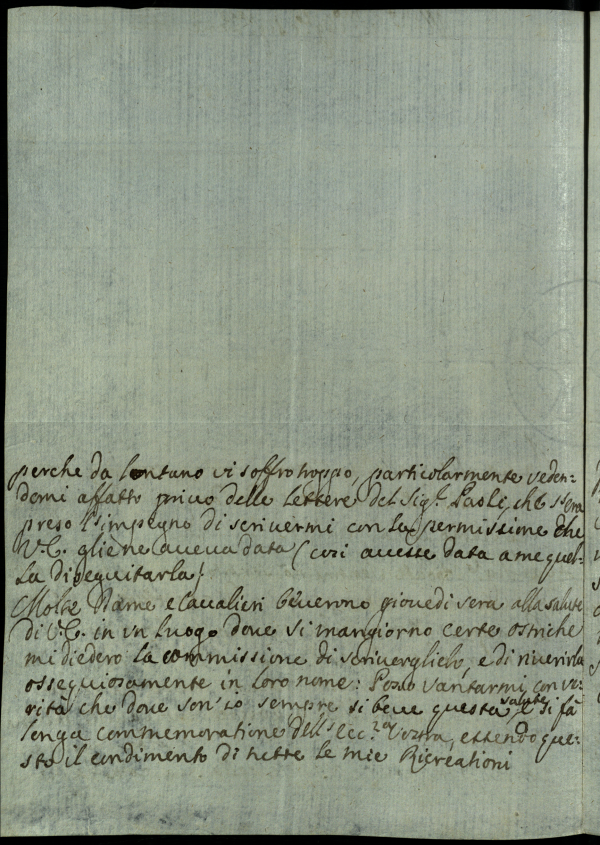 perche da lontano vi soffro troppo, particolarmente veden=
domi affatto privo delle lettere del Sig.r Paoli, che s'era
preso l'impegno di scrivermi con la permissione che
V.E. gliene aveva data (cosi avesse data a me quel=
la di seguitarla)
Molte Dame e Cavalieri beverono giovedi sera alla salute
di V.E. in un luogo dove si mangiorno certe ostriche
mi diedero la commissione di scriverglielo, e di riverirla
ossequiosamente in loro nome: Posso vantarmi con ve=
rità che dove son' io sempre si beve questa salute e si fà
longa commemoratione dell' Ecc.za Vostra, essendo que=
sto il condimento di tutte le mie Ricreationi